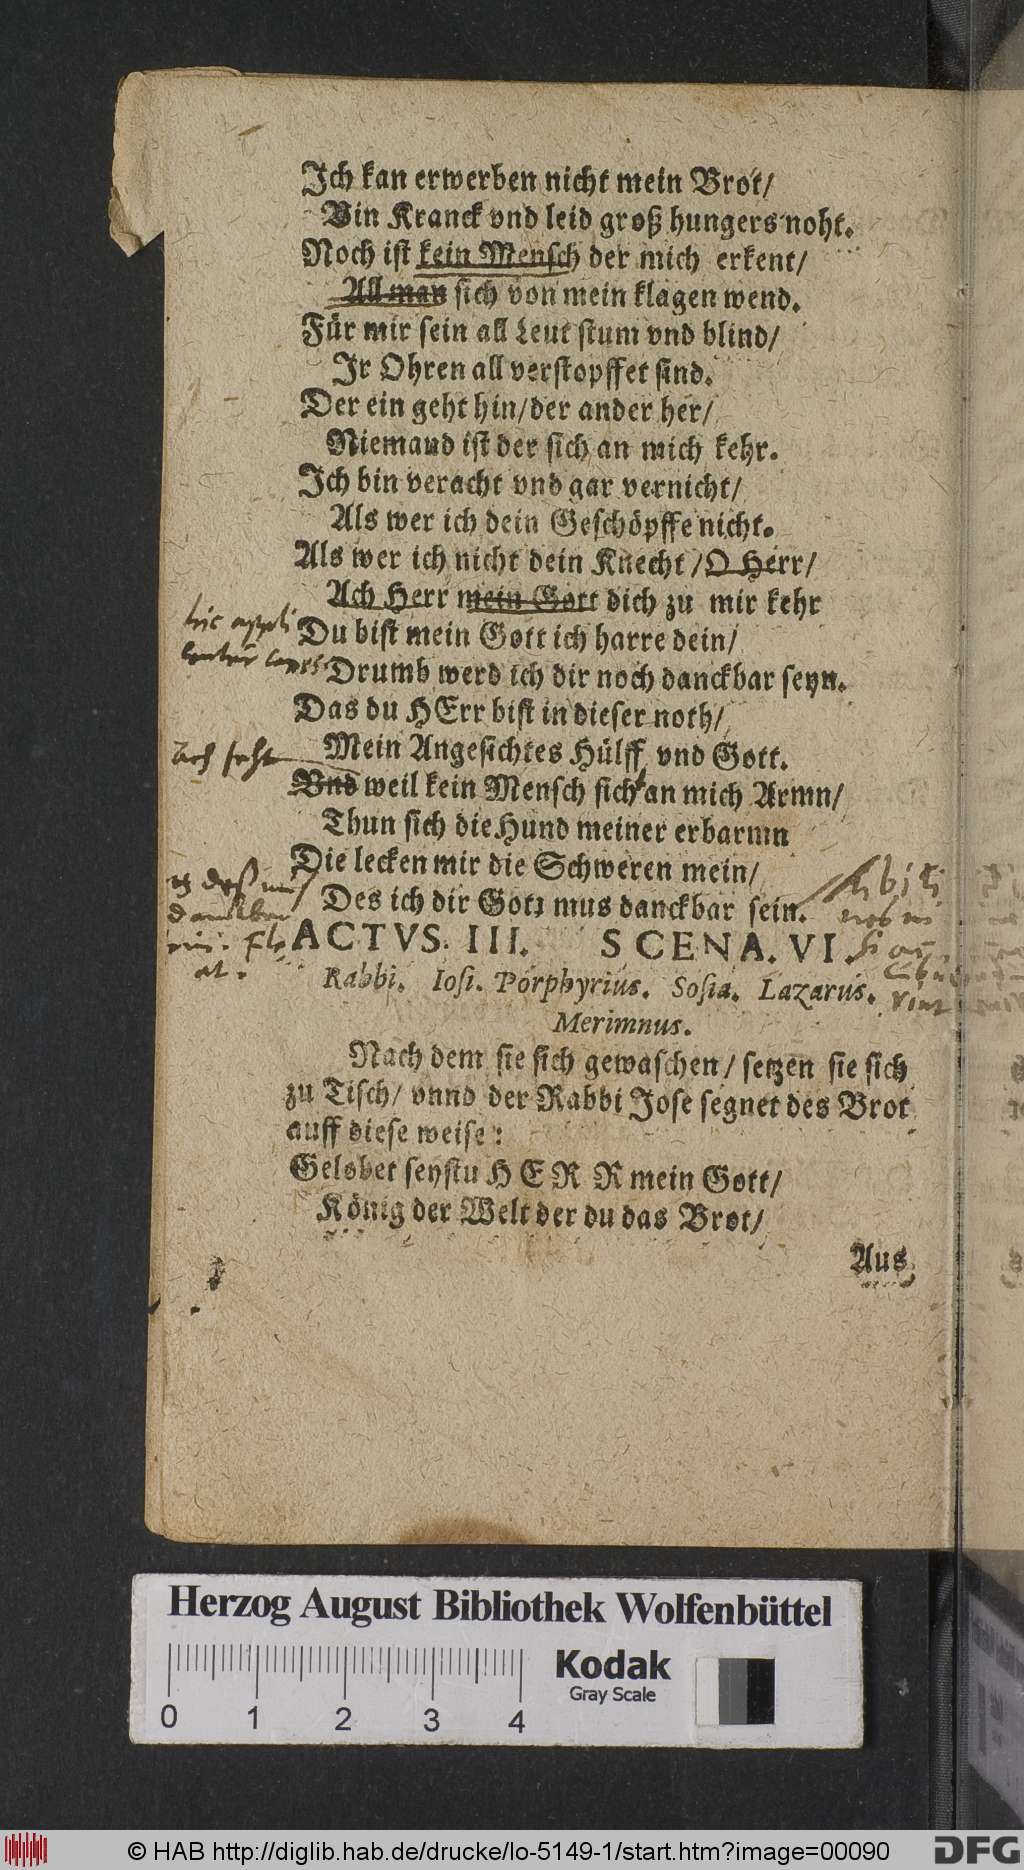 Ich kan erwerben nicht mein Brot/
Bin Kranck vnd leid groß hungers noht.
Noch ist kein Mensch der mich erkent/
All man sich von mein klagen wend.
Für mir sein all Leut stum vnd blind/
Ir Ohren all verstopffet sind.
Der ein geht hin/der ander her/
Niemand ist der sich an mich kehr.
Ich bin veracht vnd gar vernicht/
Als wer ich dein Geschöpffe nicht.
Als wer ich nicht dein Knecht/O Herr/
Ach Herr mein Gott dich zu mir kehr
Du bist mein Gott ich harre dein/
Drumb werd ich dir noch danckbar seyn.
Das du HErr bist in dieser noth/
Mein Angesichtes Hülff vnd Gott.
Vnd weil kein Mensch sich an mich Armn/
Thun sich die Hund meiner erbarmn
Die lecken mir die Schweren mein/
Des ich dir Gott mus danckbar sein.
ACTVS. III. SCENA. VI.
Rabbi. Iosi. Porphyrius. Sosia. Lazarus.
Merimnus.
Nach dem sie sich gewaschen/ setzen sie sich
zu Tisch/ vnnd der Rabbi Jose segnet des Brot
auff diese weise:
Gelobet seystu HERR mein Gott/
König der Welt der du das Brot/
Aus
Herzog August Bibliothek Wolfenbüttel
Kodak
Gray Scale
0 1 2 3 4
© HAB http://diglib.hab.de/drucke/lo-5149-1/start.htm?image=00090
DFG